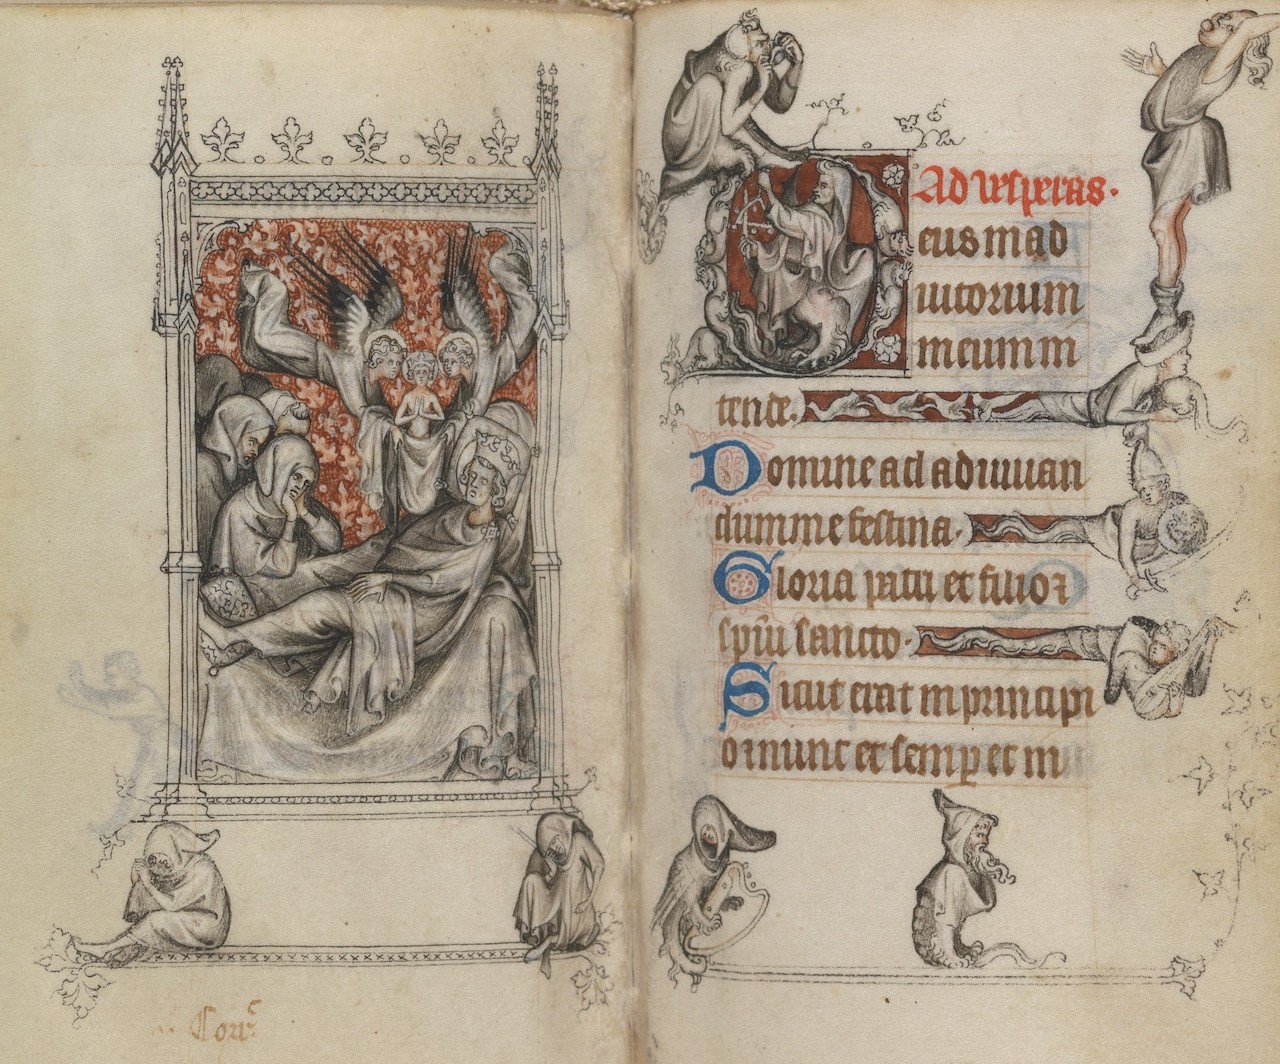 Ad vesperas.
Deus in ad
iutorium
meum in
tende.
Domine ad adiuvan
dum me festina.
Gloria patri et filio
spiu sancto.
Sicut erat in principi
o et nunc et semp et in